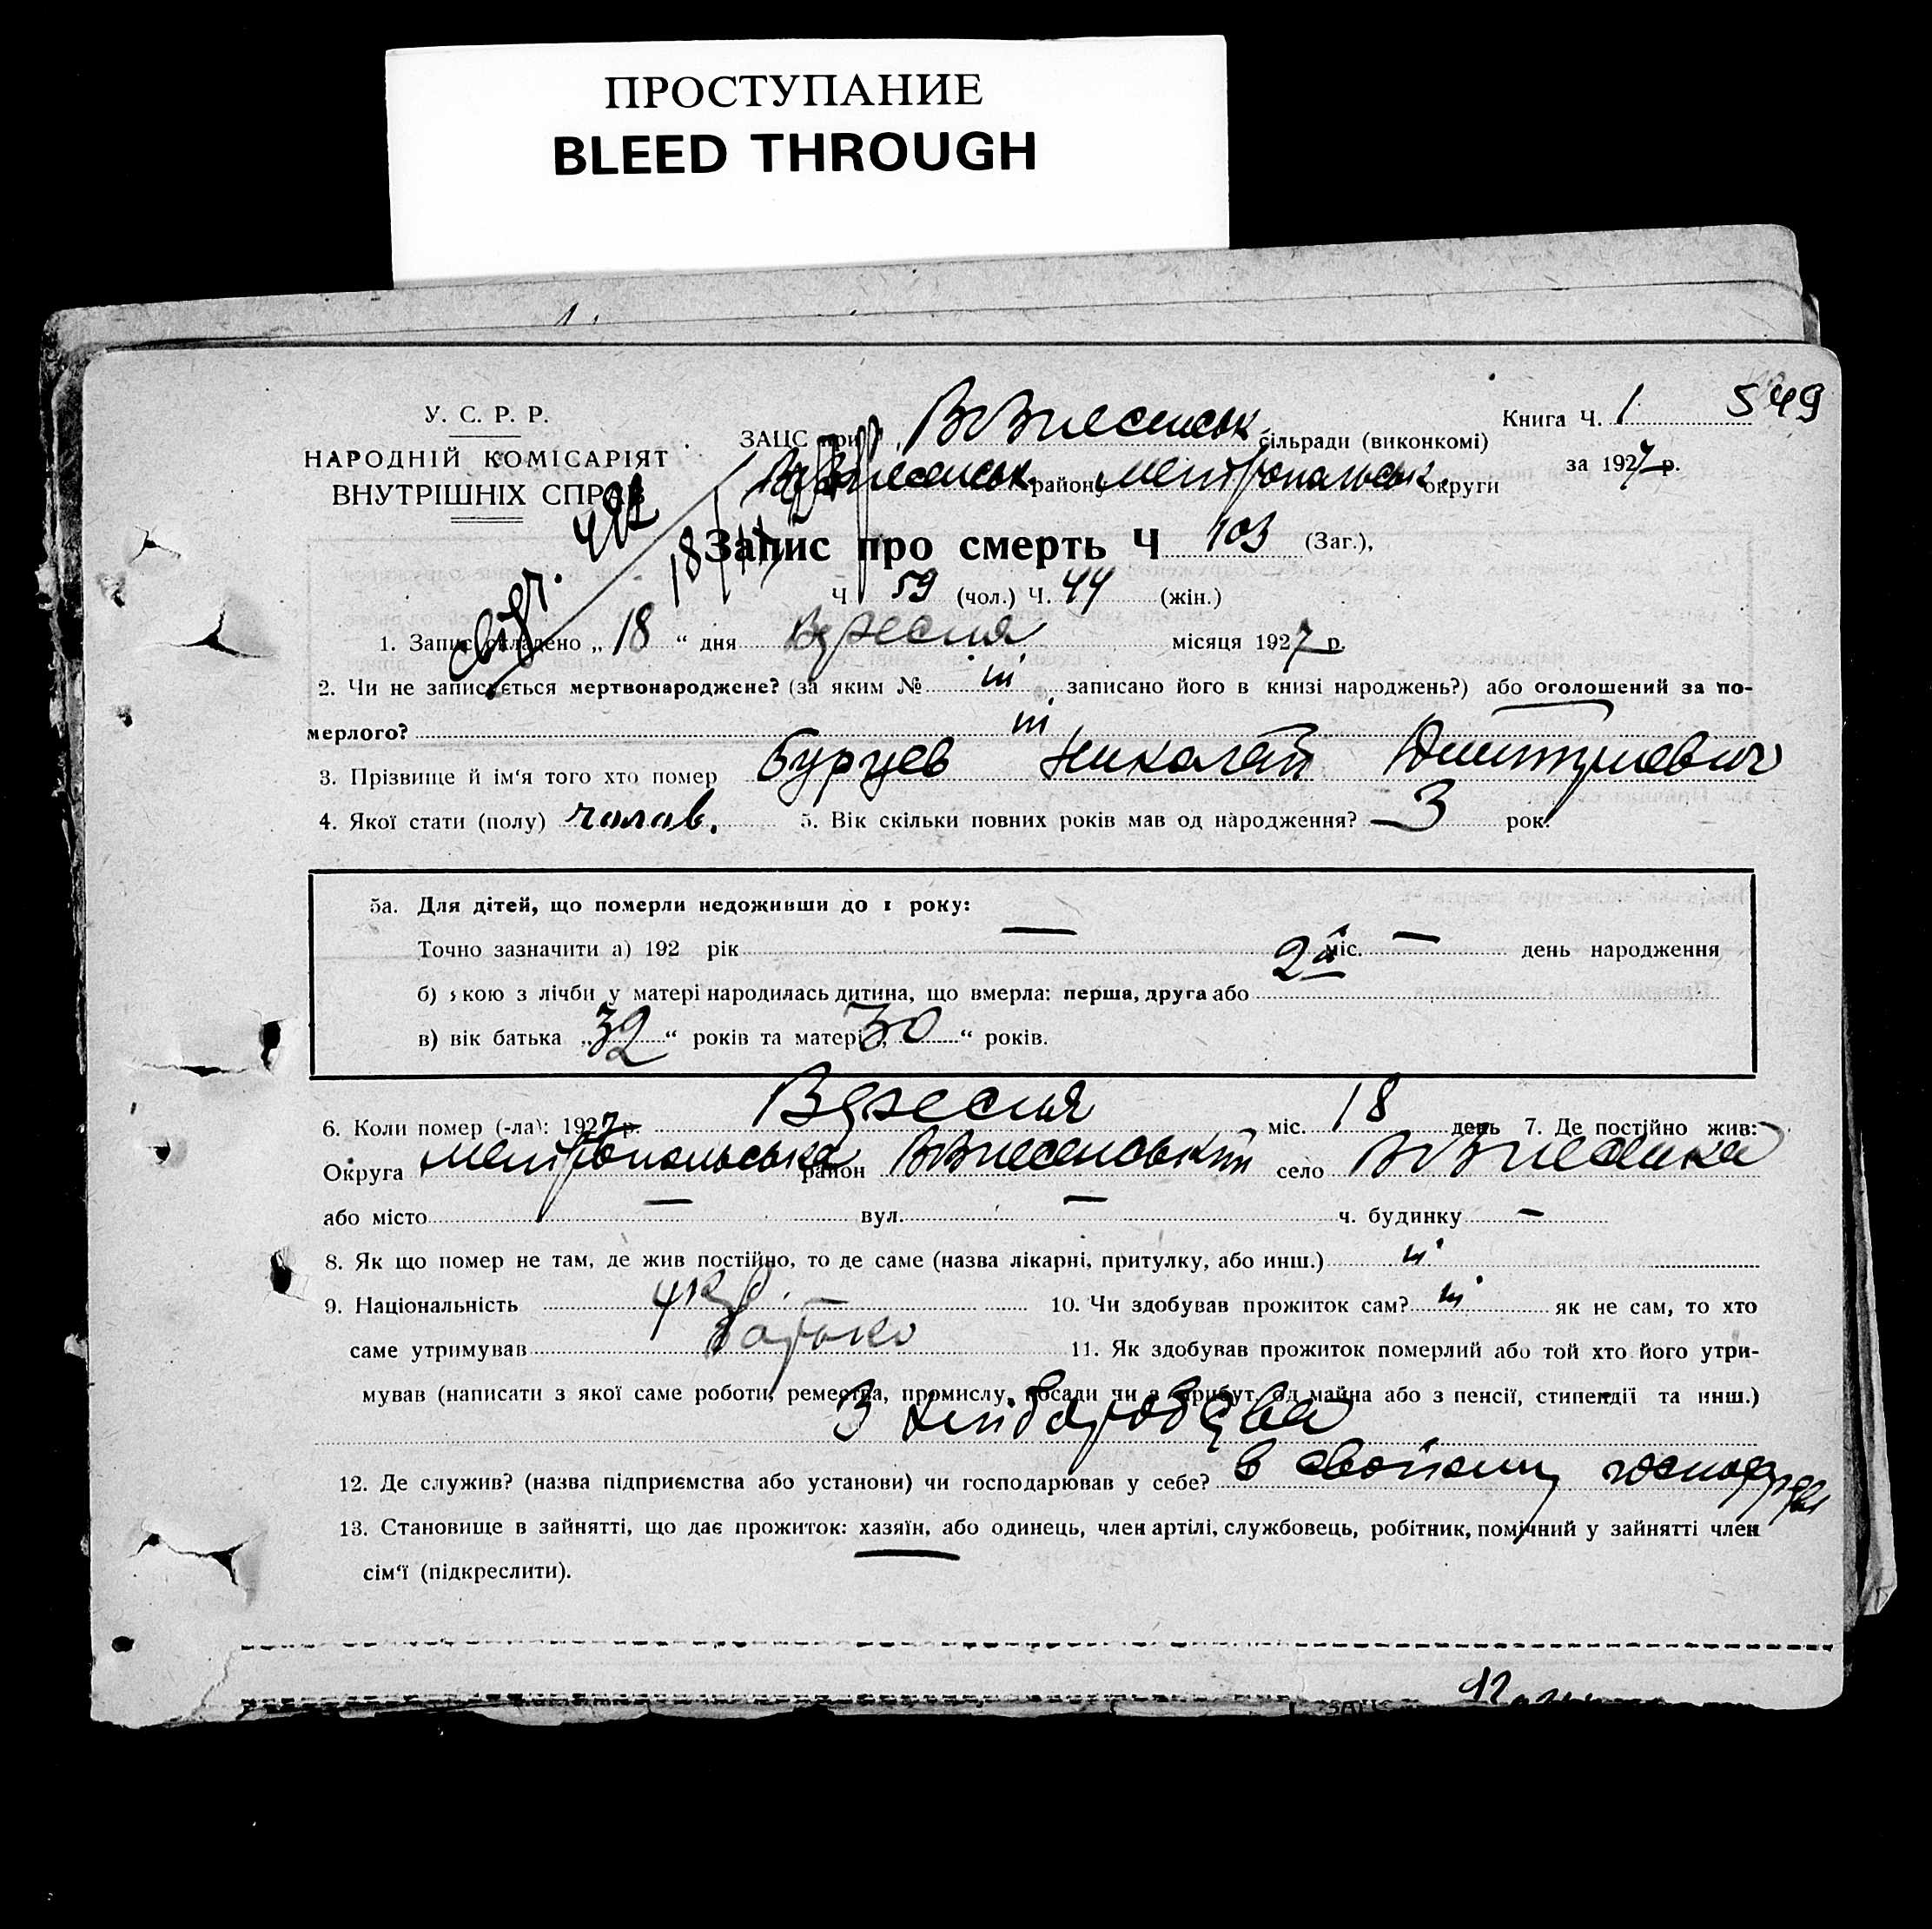 ПРОСТУПАНИЕ
BLEED THROUGH
У. С. Р. Р.
НАРОДНІЙ КОМІСАРІЯТ
ВНУТРІШНІХ СПРАВ
Книга Ч. 1 549
ЗАЦС при Вознесенськ сільради (виконкомі)
за 1927 р.
Вознесенськ району Мелітопольськ округи
Запис про смерть Ч 103 (Заг.),
Ч 59 (чол.) Ч. 44 (жін.)
1. Запис складено „ 18 “ дня Вересня місяця 1927 р.
2. Чи не записується мертвонароджене? (за яким № ні записано його в книзі народжень?) або оголошений за по-
мерлого? ні
3. Прізвище й ім‘я того хто помер Бурцев Николай Дмитриевич
4. Якої стати (полу) чолов. 5. Вік скільки повних років мав од народження? 3 рок.
5а. Для дітей, що померли недоживши до 1 року:
Точно зазначити а) 192 рік — міс. — день народження
б) якою з лічби у матері народилась дитина, що вмерла: перша, друга або 2а
в) вік батька „32“ років та матері „30“ років.
6. Коли помер (-ла): 1927 р. Вересня міс. 18 день 7. Де постійно жив:
Округа Мелітопольська район Вознесенський село Вознесенка
або місто — вул. — ч. будинку —
8. Як що помер не там, де жив постійно, то де саме (назва лікарні, притулку, або инш.) ні
9. Національність укр. 10. Чи здобував прожиток сам? ні як не сам, то хто
саме утримував батько 11. Як здобував прожиток померлий або той хто його утри-
мував (написати з якої саме роботи, ремества, промислу, посади чи з прибут. од майна або з пенсії, стипендії та инш.)
З хліборобства
12. Де служив? (назва підприємства або установи) чи господарював у себе? в своїому
13. Становище в зайнятті, що дає прожиток: хазяїн, або одинець, член артілі, службовець, робітник, помічний у зайнятті член
сім‘ї (підкреслити).